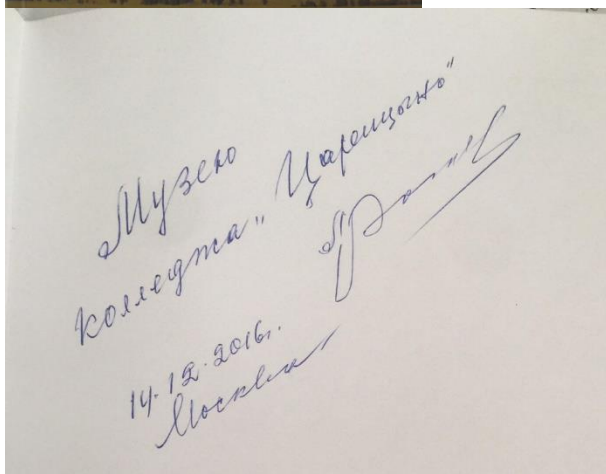 Музею
колледжа „Царицыно"
14.12.2016г.
Москва